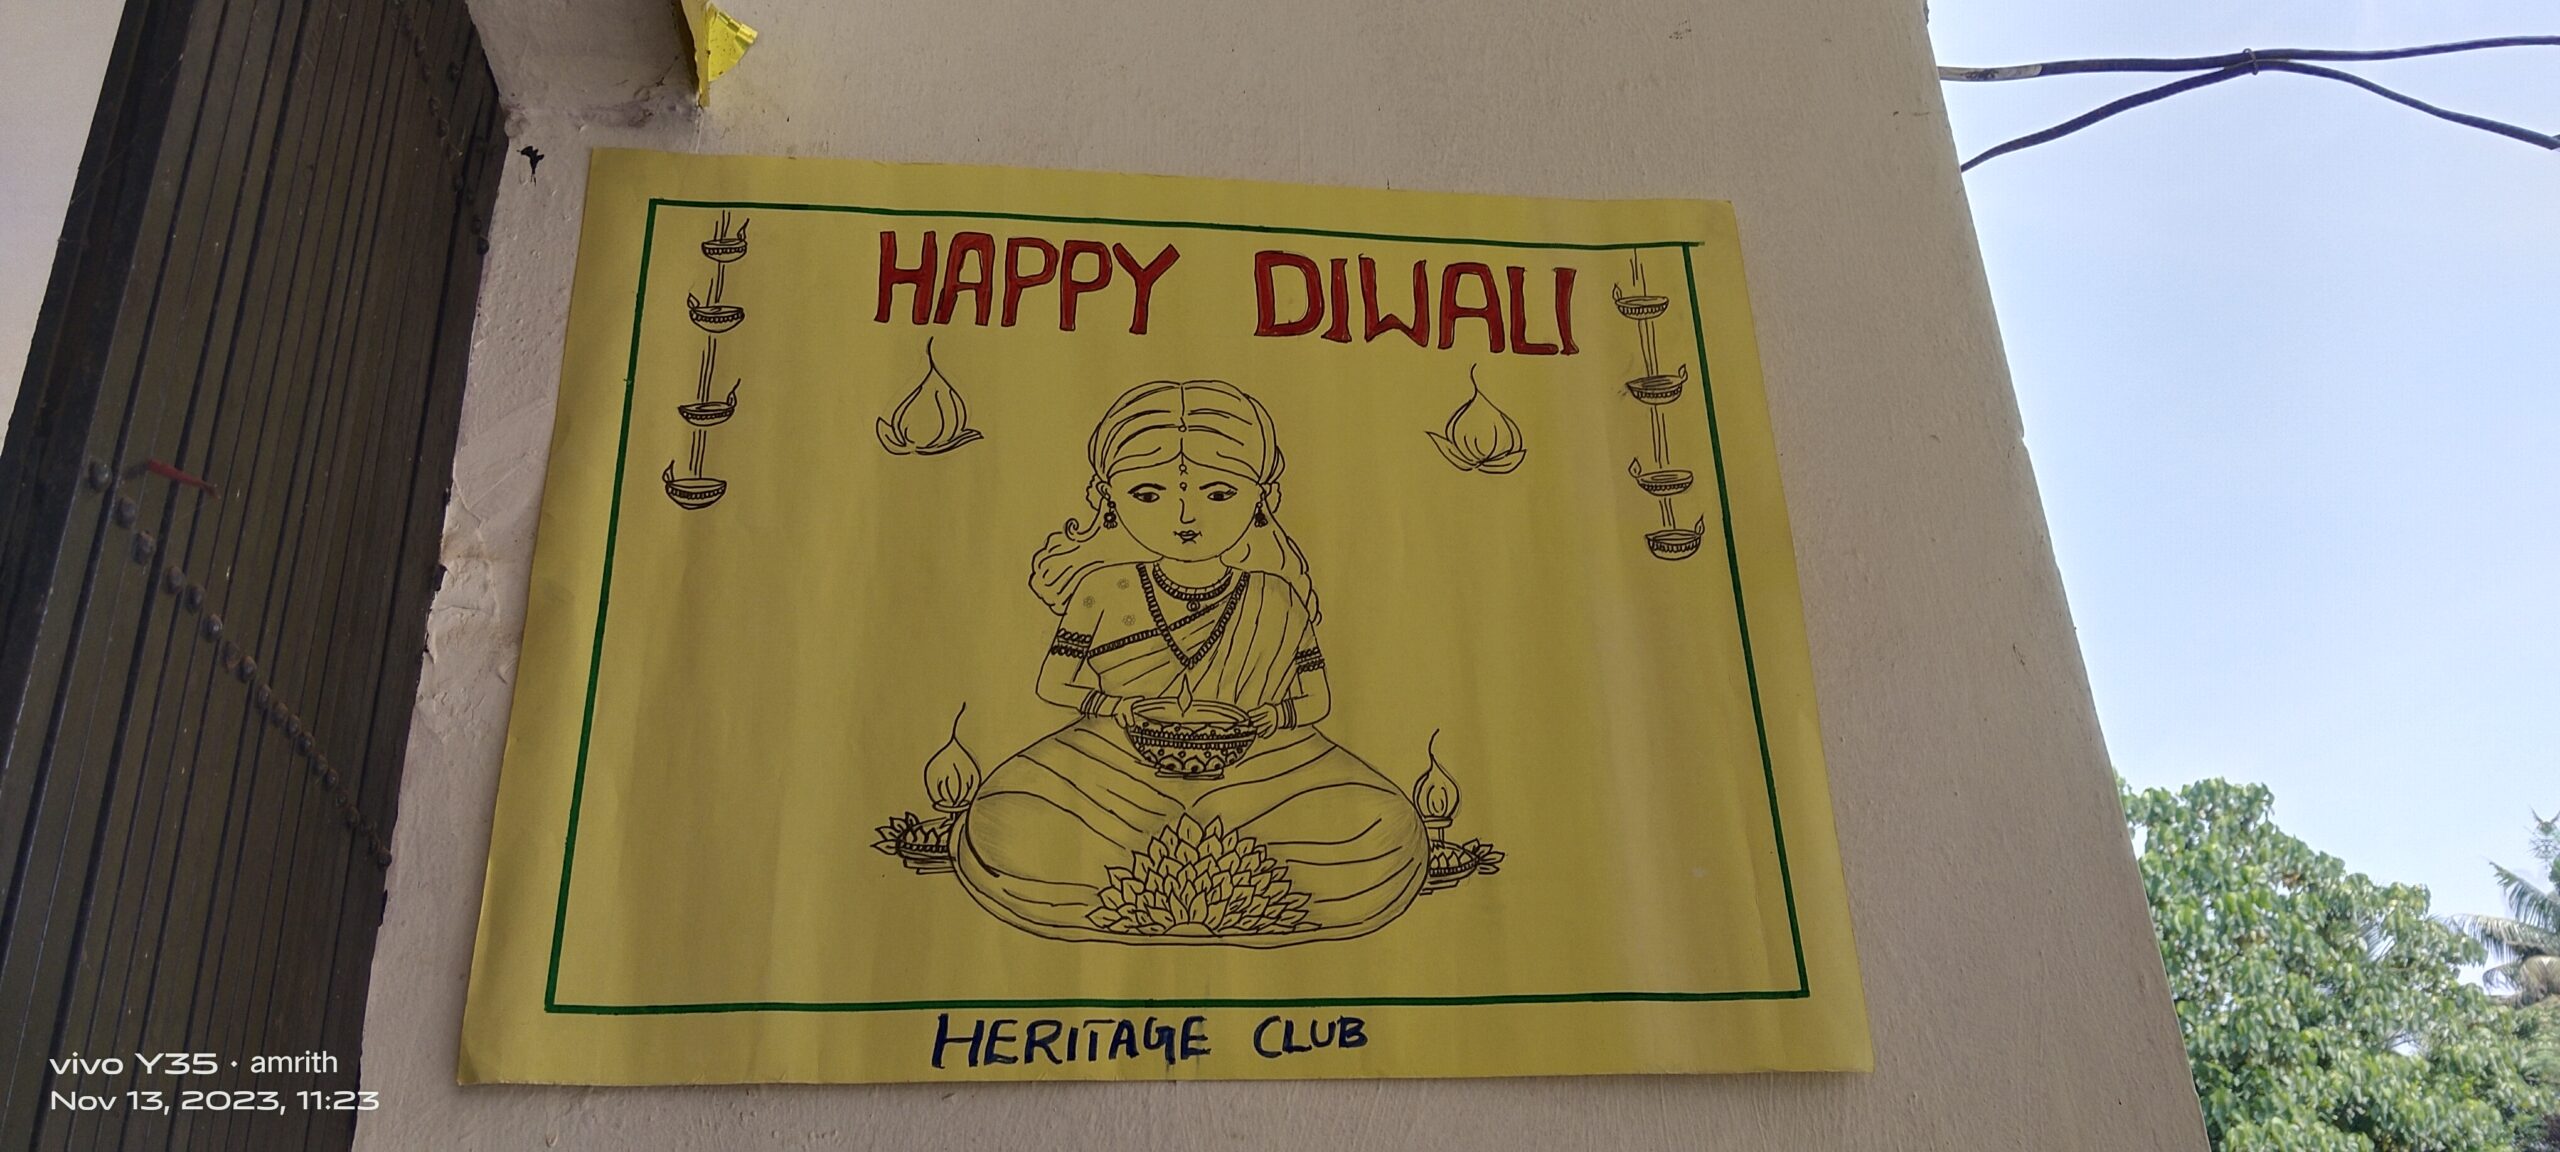 HAPPY DIWALI
HERITAGE CLUB
vivo Y35 · amrith
Nov 13, 2023, 11:23